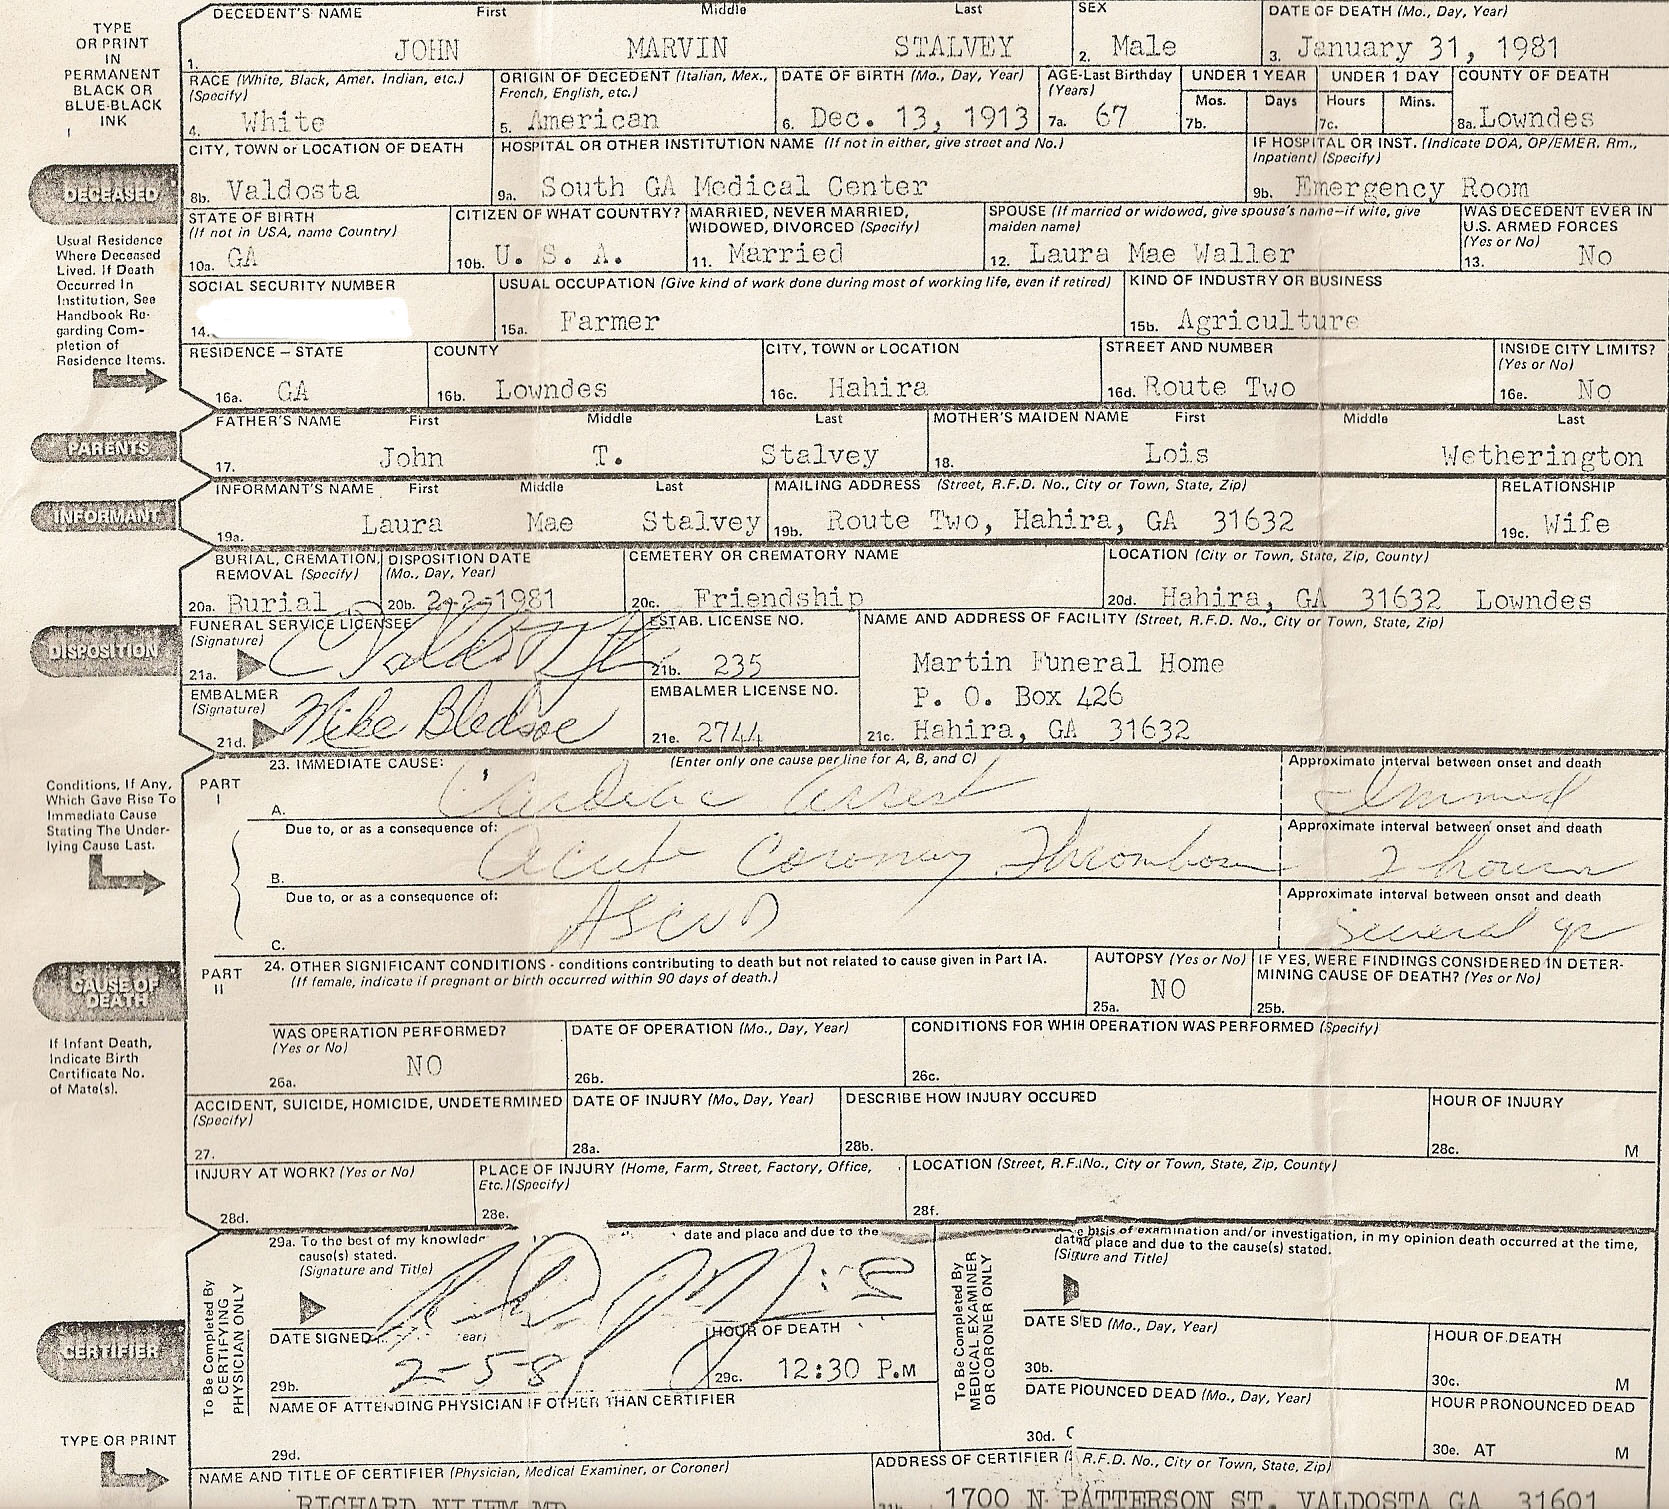 TYPE
OR PRINT
IN
PERMANENT
BLACK OR
BLUE-BLACK
INK
DECEDENT'S NAME First Middle Last SEX DATE OF DEATH (Mo., Day, Year)
1. JOHN MARVIN STALVEY 2. Male 3. January 31, 1981
RACE (White, Black, Amer. Indian, etc.) (Specify) ORIGIN OF DECEDENT (Italian, Mex., French, English, etc.) DATE OF BIRTH (Mo., Day, Year) AGE-Last Birthday (Years) UNDER 1 YEAR UNDER 1 DAY COUNTY OF DEATH
Mos. Days Hours Mins.
4. White 5. American 6. Dec. 13, 1913 7a. 67 7b. 7c. 8a. Lowndes
CITY, TOWN or LOCATION OF DEATH HOSPITAL OR OTHER INSTITUTION NAME (If not in either, give street and No.) IF HOSPITAL OR INST. (Indicate DOA, OP/EMER. Rm., Inpatient) (Specify)
DECEASED
8b. Valdosta 9a. South GA Medical Center 9b. Emergency Room
STATE OF BIRTH (If not in USA, name Country) CITIZEN OF WHAT COUNTRY? MARRIED, NEVER MARRIED, WIDOWED, DIVORCED (Specify) SPOUSE (If married or widowed, give spouse's name—if wife, give maiden name) WAS DECEDENT EVER IN U.S. ARMED FORCES (Yes or No)
10a. GA 10b. U. S. A. 11. Married 12. Laura Mae Waller 13. No
Usual Residence
Where Deceased
Lived. If Death
Occurred In
Institution, See
Handbook Re-
garding Com-
pletion of
Residence Items.
SOCIAL SECURITY NUMBER USUAL OCCUPATION (Give kind of work done during most of working life, even if retired) KIND OF INDUSTRY OR BUSINESS
14. 15a. Farmer 15b. Agriculture
RESIDENCE – STATE COUNTY CITY, TOWN or LOCATION STREET AND NUMBER INSIDE CITY LIMITS? (Yes or No)
16a. GA 16b. Lowndes 16c. Hahira 16d. Route Two 16e. No
FATHER'S NAME First Middle Last MOTHER'S MAIDEN NAME First Middle Last
PARENTS
17. John T. Stalvey 18. Lois Wetherington
INFORMANT'S NAME First Middle Last MAILING ADDRESS (Street, R.F.D. No., City or Town, State, Zip) RELATIONSHIP
INFORMANT
19a. Laura Mae Stalvey 19b. Route Two, Hahira, GA 31632 19c. Wife
BURIAL, CREMATION, REMOVAL (Specify) DISPOSITION DATE (Mo., Day, Year) CEMETERY OR CREMATORY NAME LOCATION (City or Town, State, Zip, County)
20a. Burial 20b. 2-2-1981 20c. Friendship 20d. Hahira, GA 31632 Lowndes
DISPOSITION
FUNERAL SERVICE LICENSEE (Signature) ESTAB. LICENSE NO. NAME AND ADDRESS OF FACILITY (Street, R.F.D. No., City or Town, State, Zip)
21a. 21b. 235 Martin Funeral Home
EMBALMER (Signature) EMBALMER LICENSE NO. P. O. Box 426
21d. Mike Bledsoe 21e. 2744 21c. Hahira, GA 31632
Conditions, If Any,
Which Gave Rise To
Immediate Cause
Stating The Under-
lying Cause Last.
PART I
23. IMMEDIATE CAUSE: (Enter only one cause per line for A, B, and C) Approximate interval between onset and death
A. Cardiac arrest Immed
Due to, or as a consequence of: Approximate interval between onset and death
B. Acute Coronary Thrombosis 2 hours
Due to, or as a consequence of: Approximate interval between onset and death
C. ASCVD Several yr
CAUSE OF DEATH
PART II
24. OTHER SIGNIFICANT CONDITIONS - conditions contributing to death but not related to cause given in Part IA. (If female, indicate if pregnant or birth occurred within 90 days of death.) AUTOPSY (Yes or No) IF YES, WERE FINDINGS CONSIDERED IN DETER- MINING CAUSE OF DEATH? (Yes or No)
25a. NO 25b.
If Infant Death,
Indicate Birth
Certificate No.
of Mate(s).
WAS OPERATION PERFORMED? (Yes or No) DATE OF OPERATION (Mo., Day, Year) CONDITIONS FOR WHIH OPERATION WAS PERFORMED (Specify)
26a. NO 26b. 26c.
ACCIDENT, SUICIDE, HOMICIDE, UNDETERMINED (Specify) DATE OF INJURY (Mo., Day, Year) DESCRIBE HOW INJURY OCCURED HOUR OF INJURY
27. 28a. 28b. 28c. M
INJURY AT WORK? (Yes or No) PLACE OF INJURY (Home, Farm, Street, Factory, Office, Etc.) (Specify) LOCATION (Street, R.F.No., City or Town, State, Zip, County)
28d. 28e. 28f.
CERTIFIER
To Be Completed By
CERTIFYING
PHYSICIAN ONLY
29a. To the best of my knowled date and place and due to the
cause(s) stated.
(Signature and Title)
DATE SIGNED ear) HOUR OF DEATH
29b. 2-5-81 29c. 12:30 P.M
NAME OF ATTENDING PHYSICIAN IF OTHER THAN CERTIFIER
29d.
To Be Completed By
MEDICAL EXAMINER
OR CORONER ONLY
e basis of examination and/or investigation, in my opinion death occurred at the time,
dat place and due to the cause(s) stated.
(Sigure and Title)
DATE SED (Mo., Day, Year) HOUR OF DEATH
30b. 30c. M
DATE POUNCED DEAD (Mo., Day, Year) HOUR PRONOUNCED DEAD
30d. 30e. AT M
TYPE OR PRINT
NAME AND TITLE OF CERTIFIER (Physician, Medical Examiner, or Coroner) ADDRESS OF CERTIFIER ( R.F.D. No., City or Town, State, Zip)
RICHARD NIJEM MD 31b. 1700 N PATTERSON ST. VALDOSTA GA 31601